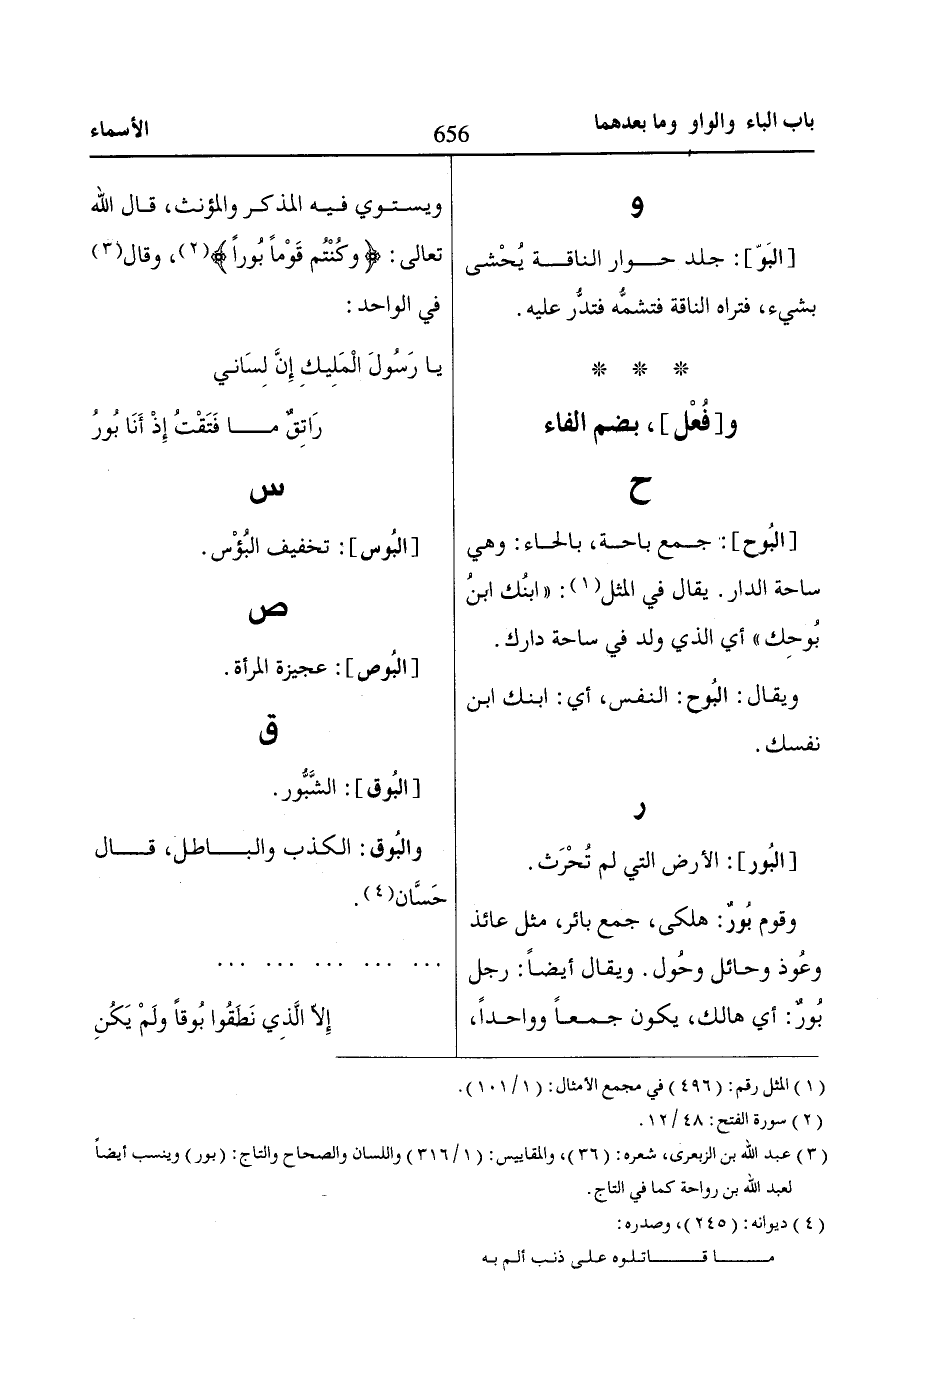 باب الباء والواو وما بعدهما
656
الأسماء
و
[البَوّ]: جلد حوار الناقة يُحْشى
بشيء، فتراه الناقة فتشمُّه فتدُّر عليه.
* * *
و[فُعْل]، بضم الفاء
ح
[البُوح]: جمع باحة، بالحاء: وهي
ساحة الدار. يقال في المثل(١): «ابنُك ابنُ
بُوحِك» أي الذي ولد في ساحة دارك.
ويقال: البُوح: النفس، أي: ابنك ابن
نفسك.
ر
[البُور]: الأرض التي لم تُحْرَث.
وقوم بُورٌ: هلكى، جمع بائر، مثل عائذ
وعُوذ وحائل وحُول. ويقال أيضاً: رجل
بُورٌ: أي هالك، يكون جمعاً وواحداً،
ويستوي فيه المذكر والمؤنث، قال الله
تعالى: ﴿وكُنْتُم قَوْماً بُوراً﴾(٢)، وقال(٣)
في الواحد:
يا رَسُولَ الْمَلِيكِ إِنَّ لِسَاني
رَاتِقٌ ما فَتَقْتُ إِذْ أَنَا بُورُ
س
[البُوس]: تخفيف البُؤْس.
ص
[البُوص]: عجيزة المرأة.
ق
[البُوق]: الشَّبُّور.
والبُوق: الكذب والباطل، قال
حَسَّان(٤).
... ... ... ... ...
إِلاّ الَّذي نَطَقُوا بُوقاً ولَمْ يَكُنِ
(١) المثل رقم: (٤٩٦) في مجمع الأمثال: (١/١٠١).
(٢) سورة الفتح: ٤٨/١٢.
(٣) عبد الله بن الزبعرى، شعره: (٣٦)، والمقاييس: (١/٣١٦) واللسان والصحاح والتاج: (بور) وينسب أيضاً
لعبد الله بن رواحة كما في التاج.
(٤) ديوانه: (٢٤٥)، وصدره:
ما قاتلوه على ذنب ألم به